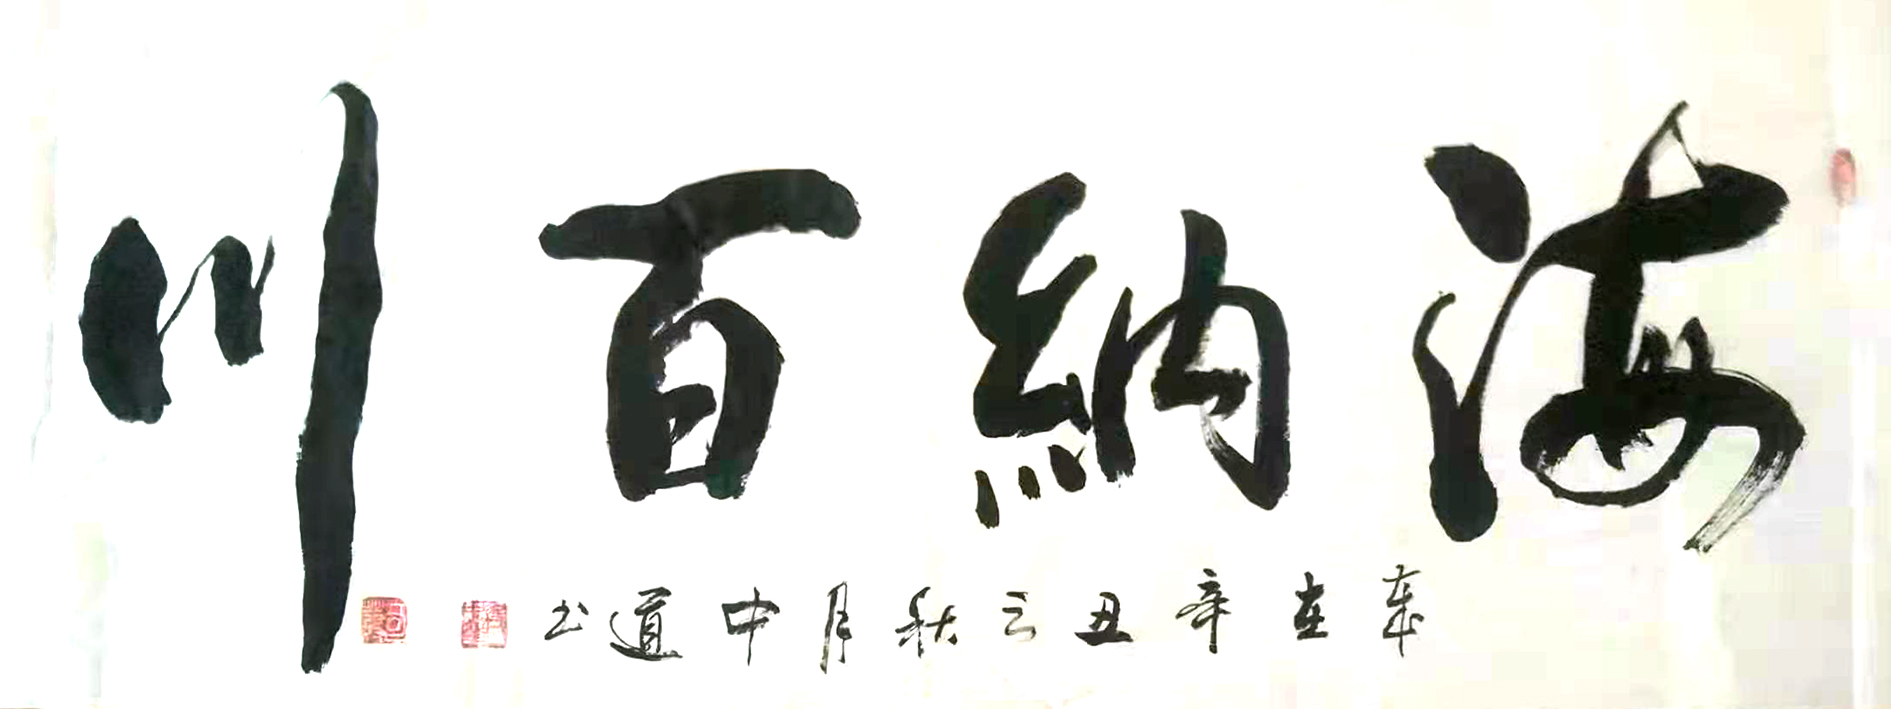 海納百川
歲在辛丑之秋月中道书